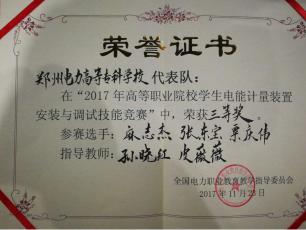 荣誉证书
郑州电力高等专科学校 代表队：
在“2017年高等职业院校学生电能计量装置
安装与调试技能竞赛”中，荣获三等奖。
参赛选手：麻志杰 张东宝 栗庆伟
指导教师：孙晓红 皮薇薇
全国电力职业教育教学指导委员会
2017年11月23日